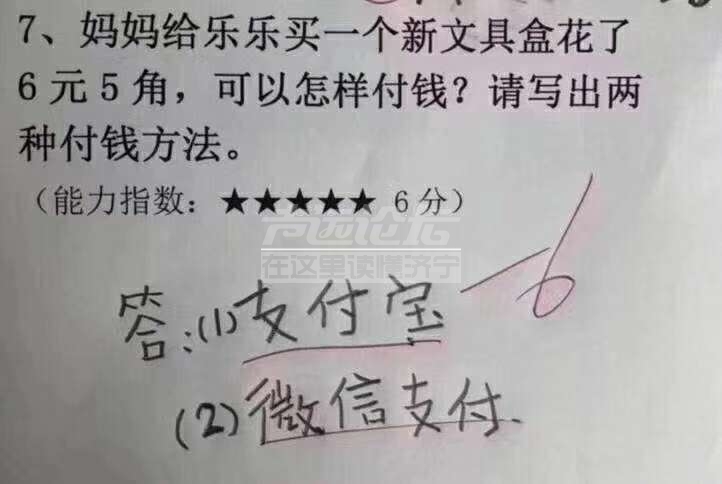 7、妈妈给乐乐买一个新文具盒花了
6元5角，可以怎样付钱？请写出两
种付钱方法。
（能力指数：★★★★★ 6分）
在这里读懂济宁
答：(1)支付宝
-6
(2)微信支付.